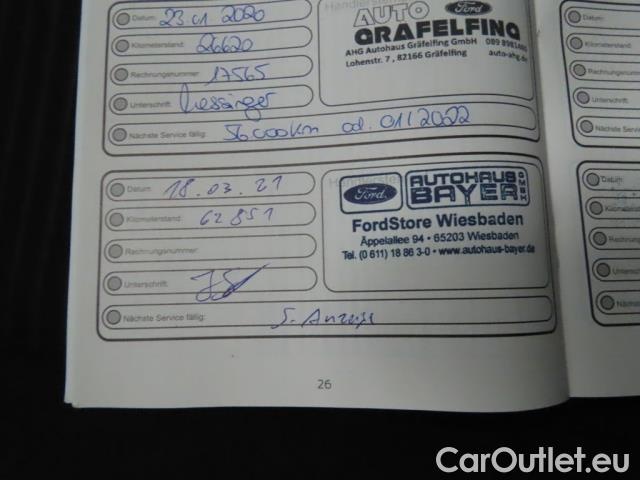 Datum: 23 01 2020
Kilometerstand: 26620
Rechnungsnummer: 17565
Unterschrift:
Nächste Service fällig: 56000km od. 01/2022
Händlerstempel
AUTO Ford
GRÄFELFING
AHG Autohaus Gräfelfing GmbH 089 8981460
Lohenstr. 7, 82166 Gräfelfing auto-ahg.de
Datum: 18.03.21
Kilometerstand: 62851
Rechnungsnummer:
Unterschrift:
Nächste Service fällig: S. Anzeige
Ford AUTOHAUS
BAYER GMBH
FordStore Wiesbaden
Äppelallee 94 • 65203 Wiesbaden
Tel. (0 611) 18 86 3-0 • www.autohaus-bayer.de
Datum:
Kilometerstand:
Rechnungsnummer:
Unterschrift:
Nächste
Datum:
Kilometerstand:
Rechnungsnummer:
Unterschrift:
Nächste
26
CarOutlet.eu